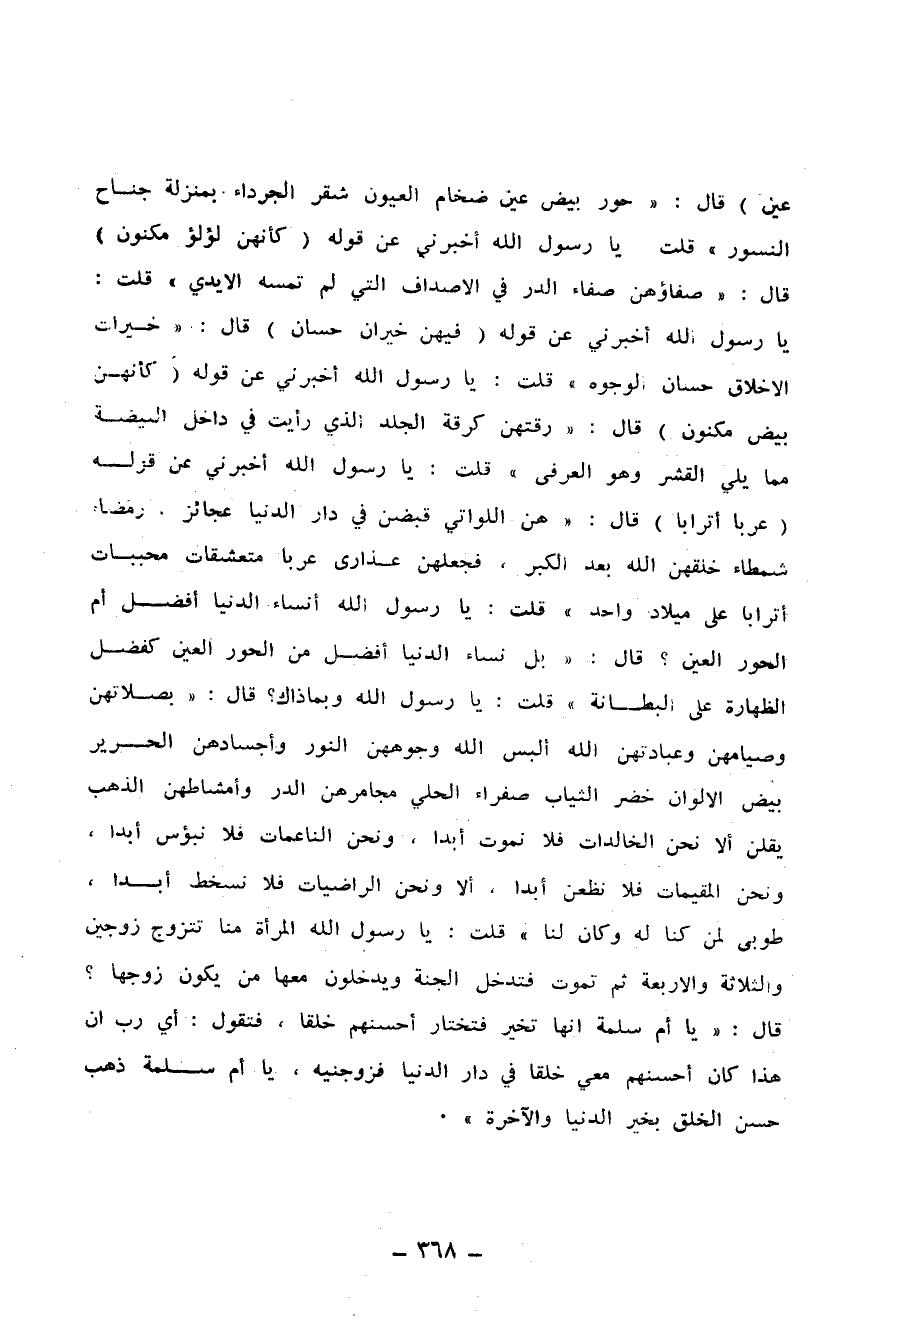 عين ) قال : « حور بيض عين ضخام العيون شقر الجرداء بمنزلة جناح
النسور » قلت يا رسول الله أخبرني عن قوله ( كأنهن لؤلؤ مكنون )
قال : « صفاؤهن صفاء الدر في الاصداف التي لم تمسه الايدي » قلت :
يا رسول الله أخبرني عن قوله ( فيهن خيران حسان ) قال : « خيرات
الاخلاق حسان الوجوه » قلت : يا رسول الله أخبرني عن قوله ( كأنهن
بيض مكنون ) قال : « رقتهن كرقة الجلد الذي رأيت في داخل البيضة
مما يلي القشر وهو العرفى » قلت : يا رسول الله أخبرني عن قزله
( عربا أترابا ) قال : « هن اللواتي قبضن في دار الدنيا عجائز . رمضاء
شمطاء خلقهن الله بعد الكبر ، فجعلهن عذارى عربا متعشقات محببات
أترابا على ميلاد واحد » قلت : يا رسول الله أنساء الدنيا أفضل أم
الحور العين ؟ قال : « بل نساء الدنيا أفضل من الحور العين كفضل
الظهارة على البطانة » قلت : يا رسول الله وبماذاك؟ قال : « بصلاتهن
وصيامهن وعبادتهن الله ألبس الله وجوههن النور وأجسادهن الحرير
بيض الالوان خضر الثياب صفراء الحلي مجامرهن الدر وأمشاطهن الذهب
يقلن ألا نحن الخالدات فلا نموت أبدا ، ونحن الناعمات فلا نبؤس أبدا ،
ونحن المقيمات فلا نظعن أبدا ، ألا ونحن الراضيات فلا نسخط أبدا ،
طوبى لمن كنا له وكان لنا » قلت : يا رسول الله المرأة منا تتزوج زوجين
والثلاثة والاربعة ثم تموت فتدخل الجنة ويدخلون معها من يكون زوجها ؟
قال : « يا أم سلمة انها تخير فتختار أحسنهم خلقا ، فتقول : أي رب ان
هذا كان أحسنهم معي خلقا في دار الدنيا فزوجنيه ، يا أم سلمة ذهب
حسن الخلق بخير الدنيا والآخرة » .
– ٣٦٨ –